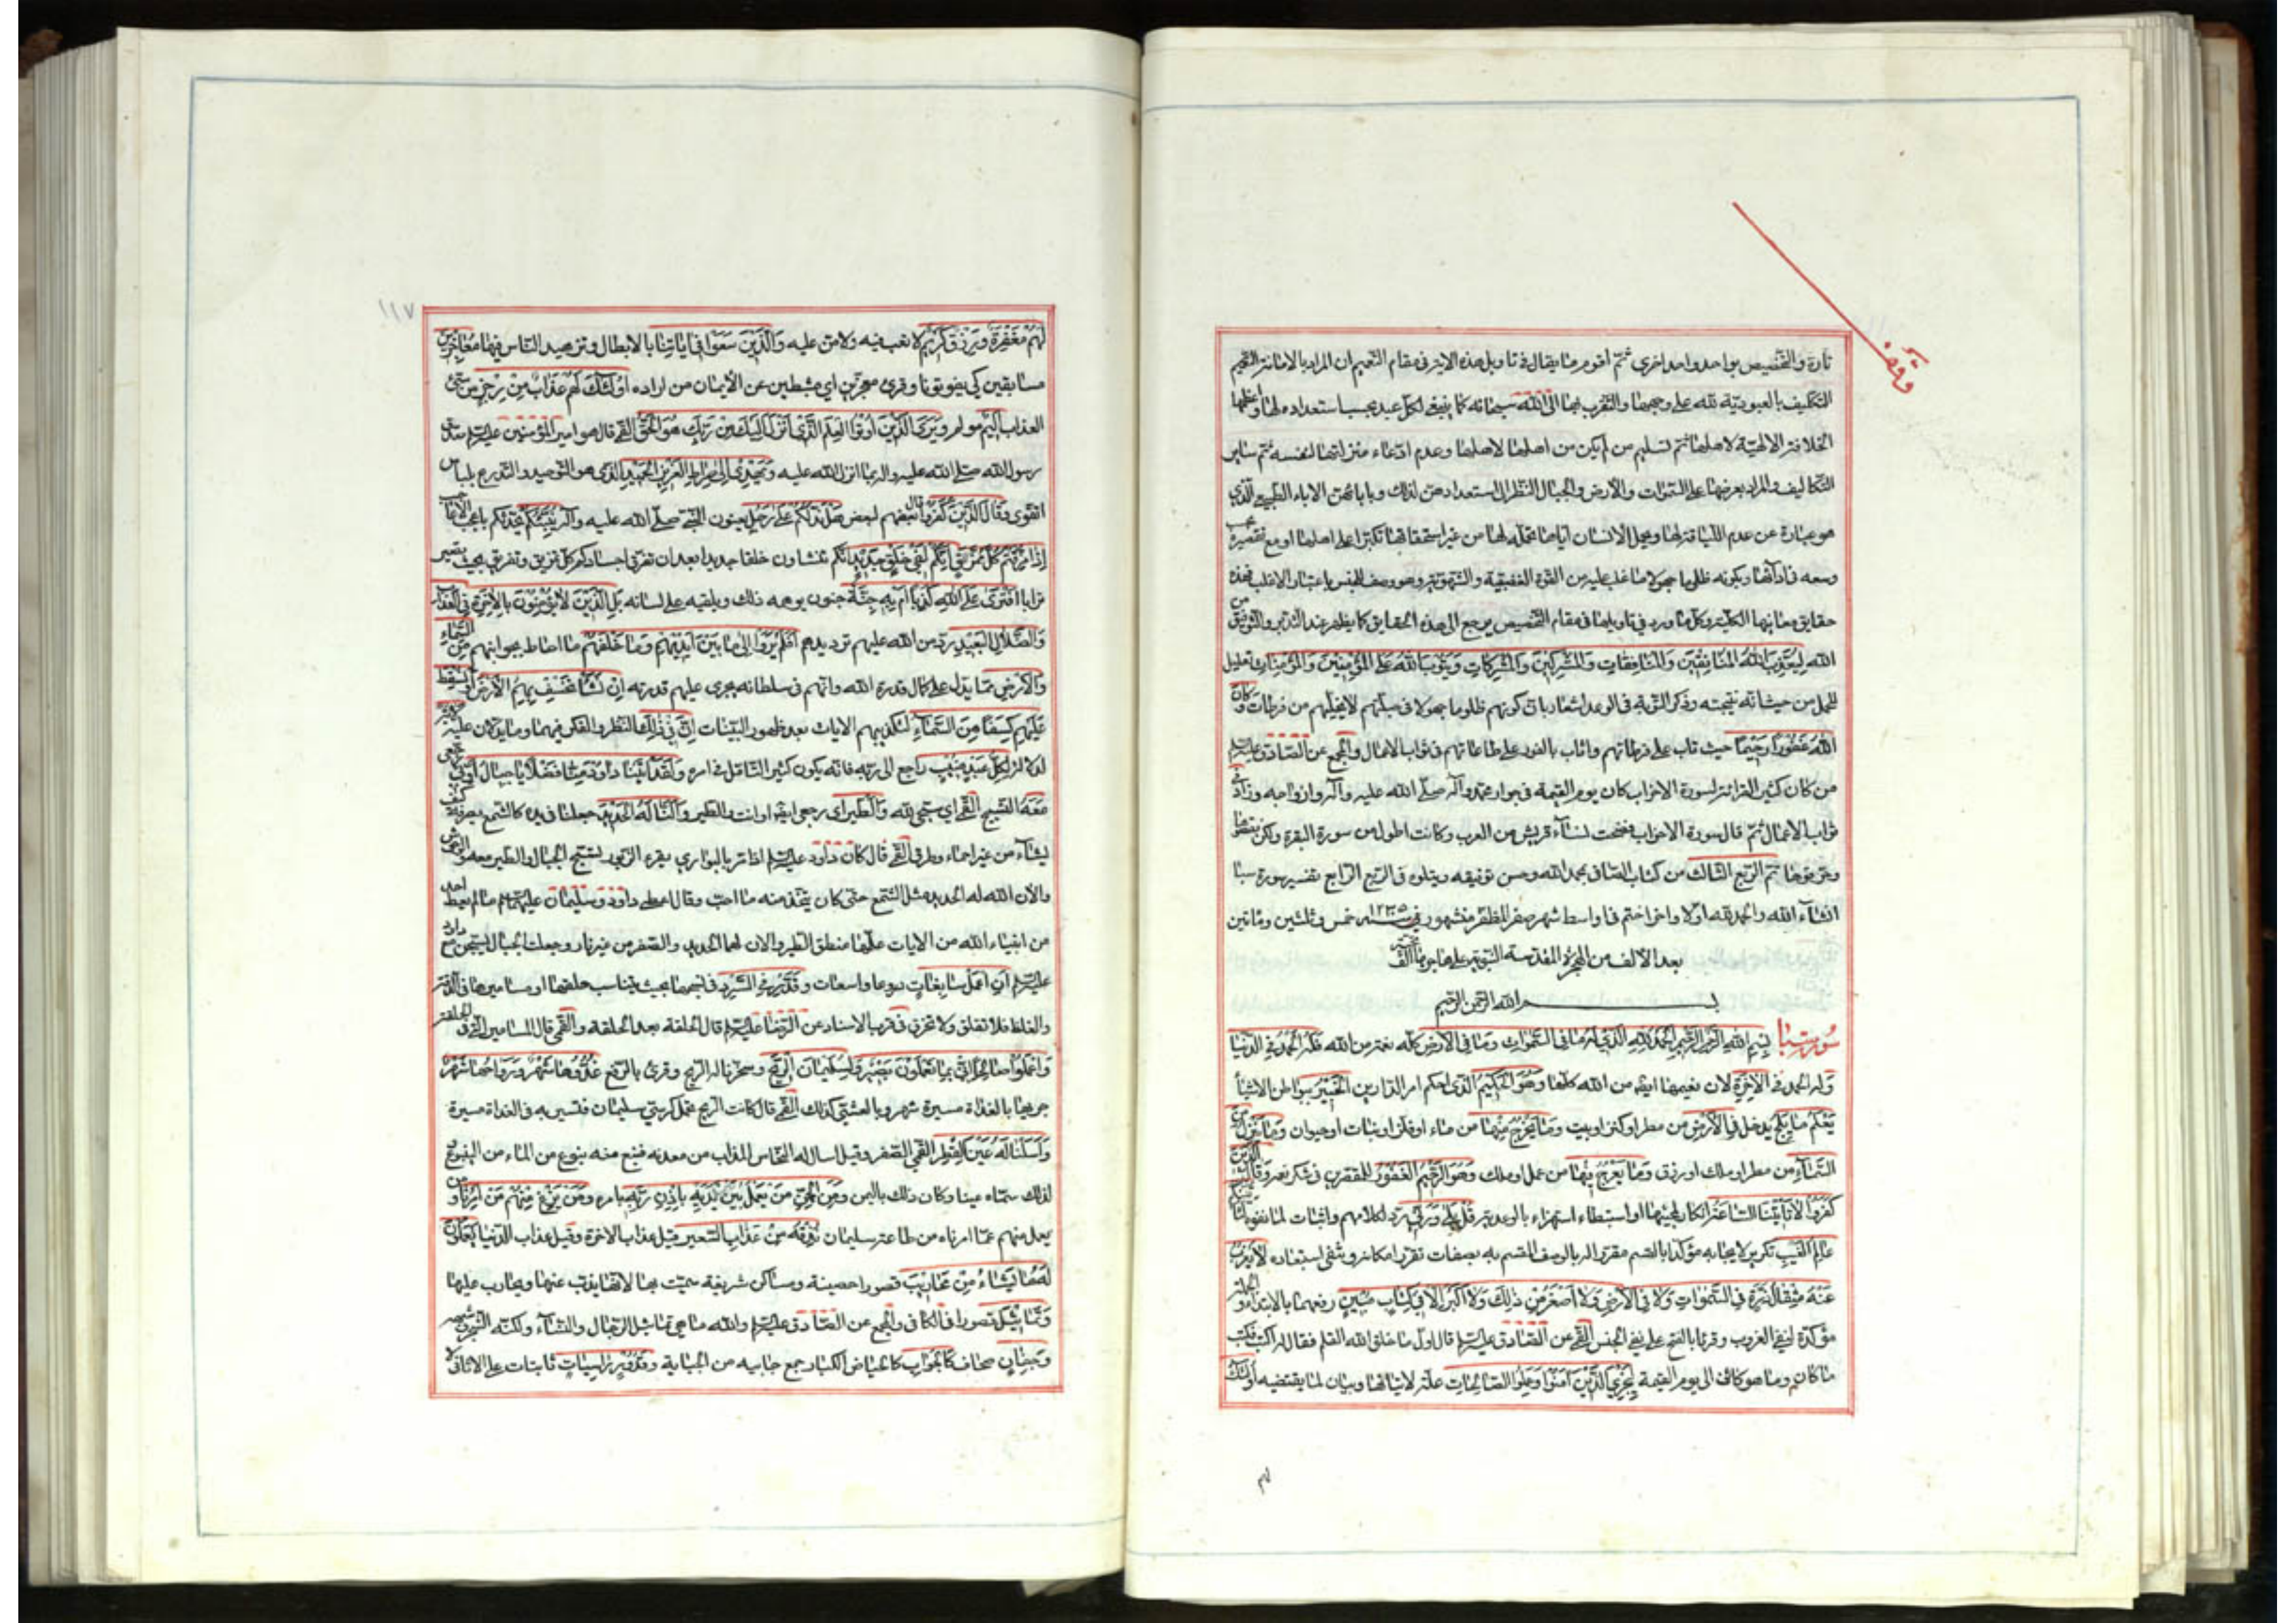 وقف
تارة والتخصيص بواحد واحد اخرى ثم اقوم ما يقال في تاويل هذه الاية في مقام التعميم ان المراد بالامانة التعميم
التكليف بالعبودية لله على وجهها والتقرب بها الى الله سبحانه كما ينبغي لكل عبد بحسب استعداده لها واعظمها
الخلافة الالهية لاهلها ثم تسليم من لم يكن من اهلها لاهلها وعدم ادعاء منزلتها لنفسه ثم ساير
التكاليف والمراد بعرضها على السموات والارض والجبال النظر الى استعدادهن لذلك وبابائهن الاباء الطبيعي الذي
هو عبارة عن عدم اللياقة لها وبحمل الانسان اياها تحمله لها من غير استحقاقها تكبرا على اهلها او مع تقصيره بحسب
وسعه في ادائها وبكونه ظلوما جهولا ما غلب عليه من القوة الغضبية والشهوية وهو وصف للجنس باعتبار الاغلب فهذه
حقايق معانيها الكلية وكل ما ورد في تاويلها في مقام التخصيص يرجع الى هذه الحقايق كما يظهر عند التدبر والتوفيق من
الله لِيُعَذِّبَ اللهُ المُنَافِقِينَ وَالمُنَافِقَاتِ وَالمُشْرِكِينَ وَالمُشْرِكَاتِ وَيَتُوبَ اللهُ عَلَى المُؤْمِنِينَ وَالمُؤْمِنَاتِ تعليل
للحمل من حيث انه نتيجته وذكر التوبة في الوعد اشعار بان كونهم ظلوما جهولا في جبلتهم لا يخليهم من فرطات وَكَانَ
اللهُ غَفُورًا رَحِيمًا حيث تاب على فرطاتهم واثاب بالفوز على طاعاتهم في ثواب الاعمال والمجمع عن الصادق عليه السلم
من كان كثير القرائة لسورة الاحزاب كان يوم القيمة في جوار محمد وآله صلى الله عليه وآله وازواجه وزاد في
ثواب الاعمال ثم قال سورة الاحزاب فضحت نساء قريش من العرب وكانت اطول من سورة البقرة ولكن نقصوها
وحرفوها تم الربع الثالث من كتاب الصافي بحمد الله وحسن توفيقه ويتلوه في الربع الرابع تفسير سورة سبا
انشاء الله والحمد لله اولا واخرا ختم في اواسط شهر صفر المظفر من شهور سنة ١٢٣٥ خمس وثلثين ومائتين
بعد الالف من الهجرة المقدسة النبوية على هاجرها الف
بسم الله الرحمن الرحيم
سورة سبا بِسْمِ اللهِ الرَّحْمٰنِ الرَّحِيمِ الحَمْدُ لِلّهِ الَّذِي لَهُ مَا فِي السَّمٰوَاتِ وَمَا فِي الأَرْضِ كله نعمة من الله فله الحمد في الدنيا
وَلَهُ الحَمْدُ فِي الآخِرَةِ لان نعيمها ايضا من الله كلها وَهُوَ الحَكِيمُ الذي احكم امر الدارين الخَبِيرُ ببواطن الاشيأ
يَعْلَمُ مَا يَلِجُ يدخل فِي الأَرْضِ من مطر او كنز او ميت وَمَا يَخْرُجُ مِنْهَا من ماء او فلز او نبات او حيوان وَمَا يَنْزِلُ مِنَ
السَّمَاءِ من مطر او ملك او رزق وَمَا يَعْرُجُ فِيهَا من عمل او ملك وَهُوَ الرَّحِيمُ الغَفُورُ للمقصرين في شكر نعمه وَقَالَ الَّذِينَ
كَفَرُوا لاَ تَأْتِينَا السَّاعَةُ انكار لمجيئها او استبطاء استهزاء بالوعد به قُلْ بَلَى وَرَبِّي رد لكلامهم واثبات لما نفوه لَتَأْتِيَنَّكُمْ
عَالِمِ الغَيْبِ تكرير لايجابه مؤكدا بالقسم مقررا له بالوصف المقسم به بصفات تقرر امكانه وتنفي استبعاده لاَ يَعْزُبُ
عَنْهُ مِثْقَالُ ذَرَّةٍ فِي السَّمٰوَاتِ وَلاَ فِي الأَرْضِ وَلاَ أَصْغَرُ مِنْ ذٰلِكَ وَلاَ أَكْبَرُ إِلاَّ فِي كِتَابٍ مُبِينٍ رفعهما بالابتداء والجملة
مؤكدة لنفي العزوب وقرئا بالفتح على نفي الجنس القمي عن الصادق عليه السلم قال اول ما خلق الله القلم فقال له اكتب فكتب
ما كان وما هو كائن الى يوم القيمة لِيَجْزِيَ الَّذِينَ آمَنُوا وَعَمِلُوا الصَّالِحَاتِ علة لاتيانها وبيان لما يقتضيه أُولٰئِكَ
١١٧
لَهُمْ مَغْفِرَةٌ وَرِزْقٌ كَرِيمٌ لا تعب فيه ولا من عليه وَالَّذِينَ سَعَوْا فِي آيَاتِنَا بالابطال وتزهيد الناس فيها مُعَاجِزِينَ
مسابقين كي يفوتونا وقرئ معجزين اي مثبطين عن الايمان من اراده أُولٰئِكَ لَهُمْ عَذَابٌ مِنْ رِجْزٍ من سيئ
العذاب أَلِيمٌ مولم وَيَرَى الَّذِينَ أُوتُوا العِلْمَ الَّذِي أُنْزِلَ إِلَيْكَ مِنْ رَبِّكَ هُوَ الحَقَّ القمي قال هو امير المؤمنين عليه السلم صدق
رسول الله صلى الله عليه وآله بما انزل الله عليه وَيَهْدِي إِلَى صِرَاطِ العَزِيزِ الحَمِيدِ الذي هو التوحيد والتدرع بلباس
التقوى وَقَالَ الَّذِينَ كَفَرُوا قال بعضهم لبعض هَلْ نَدُلُّكُمْ عَلَى رَجُلٍ يعنون النبي صلى الله عليه وآله يُنَبِّئُكُمْ يحدثكم باعجب الاعاجيب
إِذَا مُزِّقْتُمْ كُلَّ مُمَزَّقٍ إِنَّكُمْ لَفِي خَلْقٍ جَدِيدٍ انكم تنشاون خلقا جديدا بعد ان تفرق اجسادكم كل تمزيق وتفريق بحيث تصير
ترابا أَفْتَرَى عَلَى اللهِ كَذِبًا أَمْ بِهِ جِنَّةٌ جنون يوهمه ذلك ويلقيه على لسانه بَلِ الَّذِينَ لاَ يُؤْمِنُونَ بِالآخِرَةِ فِي العَذَابِ
وَالضَّلاَلِ البَعِيدِ رد من الله عليهم ترديدهم أَفَلَمْ يَرَوْا إِلَى مَا بَيْنَ أَيْدِيهِمْ وَمَا خَلْفَهُمْ ما احاط بجوانبهم مِنَ السَّمَاءِ
وَالأَرْضِ مما يدل على كمال قدرة الله وانهم في سلطانه يجري عليهم قدرته إِنْ نَشَأْ نَخْسِفْ بِهِمُ الأَرْضَ أَوْ نُسْقِطْ
عَلَيْهِمْ كِسَفًا مِنَ السَّمَاءِ لتكذيبهم الايات بعد ظهور البينات إِنَّ فِي ذٰلِكَ النظر والفكر فيهما وما يدلان عليه
لَآيَةً لدلالة لِكُلِّ عَبْدٍ مُنِيبٍ راجع الى ربه فانه يكون كثير التامل في امره وَلَقَدْ آتَيْنَا دَاوُدَ مِنَّا فَضْلاً يَا جِبَالُ أَوِّبِي
مَعَهُ التسبيح القمي اي سبحي لله وَالطَّيْرَ اي رجعي ايضا او انت والطير وَأَلَنَّا لَهُ الحَدِيدَ جعلنا في يده كالشمع يصرفه كيف
يشاء من غير احماء وطرق القمي قال كان داود عليه السلم اذا مر بالبراري يقرء الزبور تسبح الجبال والطير معه والوحش
والان الله له الحديد مثل الشمع حتى كان يتخذ منه ما احب وقال اعطي داود وسليمان عليهما السلم ما لم يعط احد
من انبياء الله من الايات علمهما منطق الطير والان لهما الحديد والصفر من غير نار وجعلت الجبال يسبحن مع داود
عليه السلم أَنِ اعْمَلْ سَابِغَاتٍ دروعا واسعات وَقَدِّرْ فِي السَّرْدِ في نسجها بحيث يتناسب حلقها او مساميرها في الدقة
والغلظ فلا تقلق ولا تخرق في قرب الاسناد عن الرضا عليه السلم قال الحلقة بعد الحلقة والقمي قال المسامير التي في الحلقة
وَاعْمَلُوا صَالِحًا إِنِّي بِمَا تَعْمَلُونَ بَصِيرٌ وَلِسُلَيْمَانَ الرِّيحَ وسخرنا له الريح وقرئ بالرفع غُدُوُّهَا شَهْرٌ وَرَوَاحُهَا شَهْرٌ
جريها بالغداة مسيرة شهر وبالعشي كذلك القمي قال كانت الريح تحمل كرسي سليمان فتسير به في الغداة مسيرة
وَأَسَلْنَا لَهُ عَيْنَ القِطْرِ القمي الصفر وقيل اسال له النحاس المذاب من معدنه فنبع منه نبوع من الماء من الينبوع
لذلك سماه عينا وكان ذلك باليمن وَمِنَ الجِنِّ مَنْ يَعْمَلُ بَيْنَ يَدَيْهِ بِإِذْنِ رَبِّهِ بامره وَمَنْ يَزِغْ مِنْهُمْ عَنْ أَمْرِنَا ومن
يعدل منهم عما امرناه من طاعة سليمان نُذِقْهُ مِنْ عَذَابِ السَّعِيرِ قيل عذاب الاخرة وقيل عذاب الدنيا يَعْمَلُونَ
لَهُ مَا يَشَاءُ مِنْ مَحَارِيبَ قصورا حصينة ومساكن شريفة سميت بها لانها يذب عنها ويحارب عليها
وَتَمَاثِيلَ وصورا في الكافي والمجمع عن الصادق عليه السلم والله ما هي تماثيل الرجال والنساء ولكنه الشجر وشبهه
وَجِفَانٍ صحاف كَالجَوَابِ كالحياض الكبار جمع جابيه من الجباية وَقُدُورٍ رَاسِيَاتٍ ثابتات على الاثافي لا